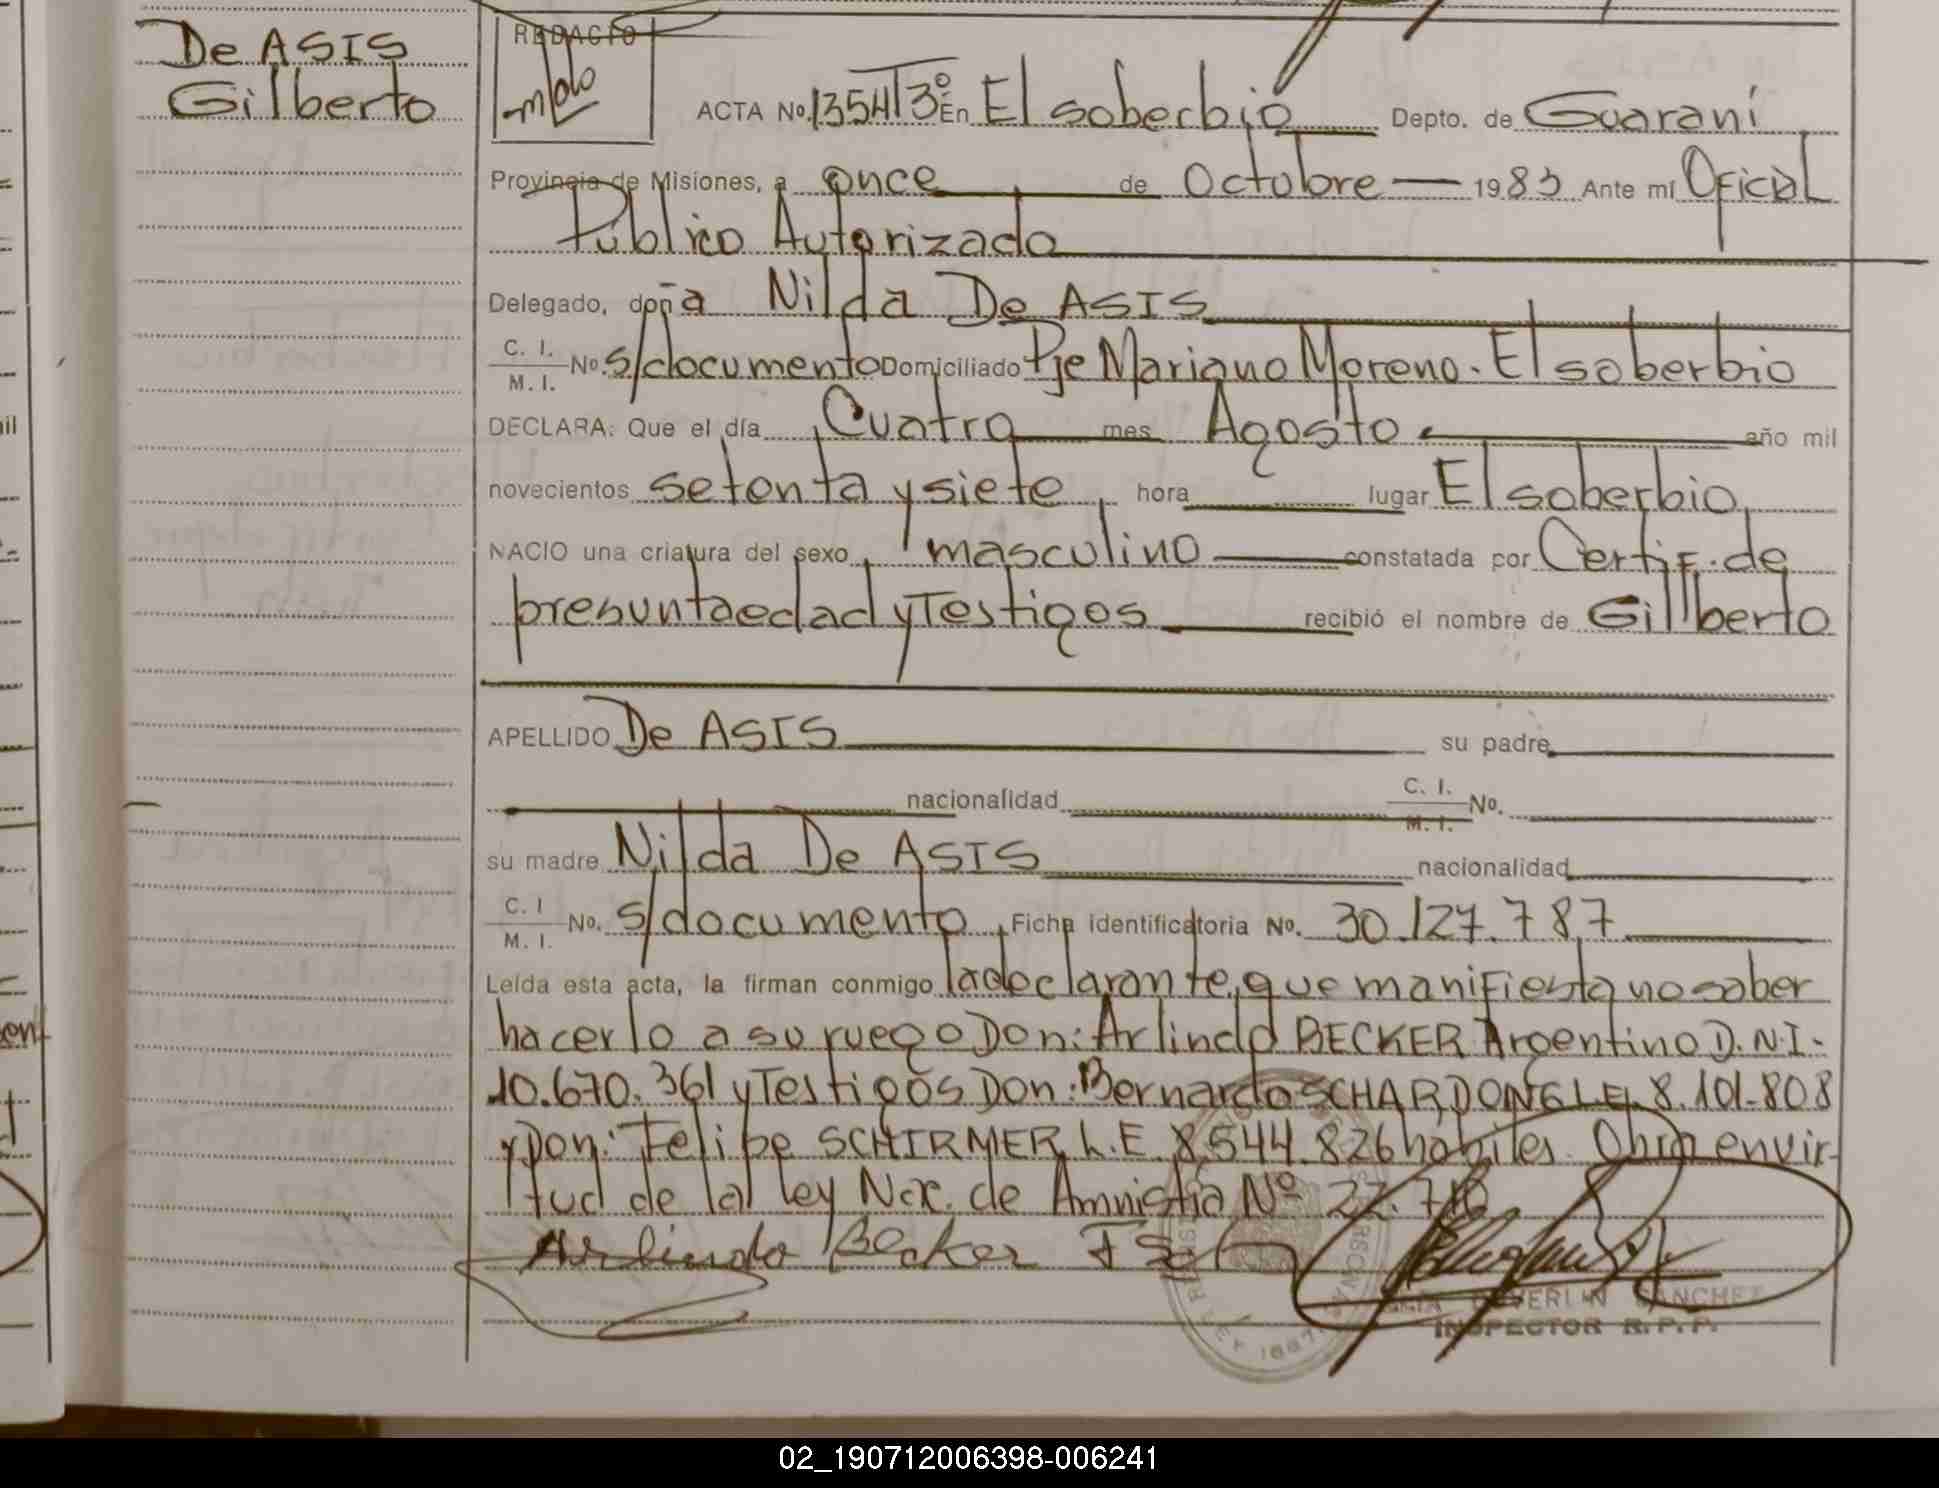 De ASIS
Gilberto
REDACTO
ACTA No. 1354 T 3º En El soberbio Depto. de Guaraní
Provincia de Misiones, a once de Octubre 1983 Ante mí Oficial
Público Autorizado
Delegado, doña Nilda De ASIS
C. I.
M. I. No. s/documento Domiciliado Pje Mariano Moreno. El soberbio
DECLARA: Que el día Cuatro mes Agosto año mil
novecientos setenta y siete hora lugar El soberbio
NACIO una criatura del sexo masculino constatada por Certif. de
presunta edad y Testigos recibió el nombre de Gilberto
APELLIDO De ASIS su padre
nacionalidad C. I. M. I. No.
su madre Nilda De ASIS nacionalidad
C. I
M. I. No. s/documento Ficha identificatoria No. 30.127.787
Leída esta acta, la firman conmigo la declarante, que manifiesta no saber
hacerlo a su ruego Don: Arlindo BECKER Argentino D.N.I.
10.670.361 y Testigos Don: Bernardo SCHARDONG L.E. 8.101.808
y Don: Felipe SCHIRMER L.E. 8.544.826 habiles. Obra en vir-
tud de la ley Nac. de Amnistia Nº 22.
Arlindo Becker
SANCHEZ
INSPECTOR R.P.P.
02_190712006398-006241